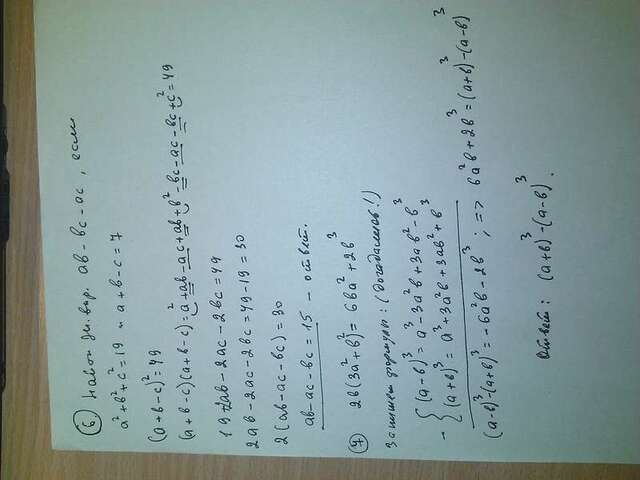 ⑥ Найти зн. выр. ab - bc - ac, если
a² + b² + c² = 19 и a + b - c = 7
(a + b - c)² = 49
(a + b - c)(a + b - c) = a² + ab - ac + ab + b² - bc - ac - bc + c² = 49
19 + 2ab - 2ac - 2bc = 49
2ab - 2ac - 2bc = 49 - 19 = 30
2(ab - ac - bc) = 30
ab - ac - bc = 15 - ответ.
⑦ 2b(3a² + b²) = 6ba² + 2b³
Запишем формулы: (Догадаемся!)
- { (a - b)³ = a³ - 3a²b + 3ab² - b³
(a + b)³ = a³ + 3a²b + 3ab² + b³
(a - b)³ - (a + b)³ = -6a²b - 2b³ ; => 6a²b + 2b³ = (a + b)³ - (a - b)³
Ответ: (a + b)³ - (a - b)³.